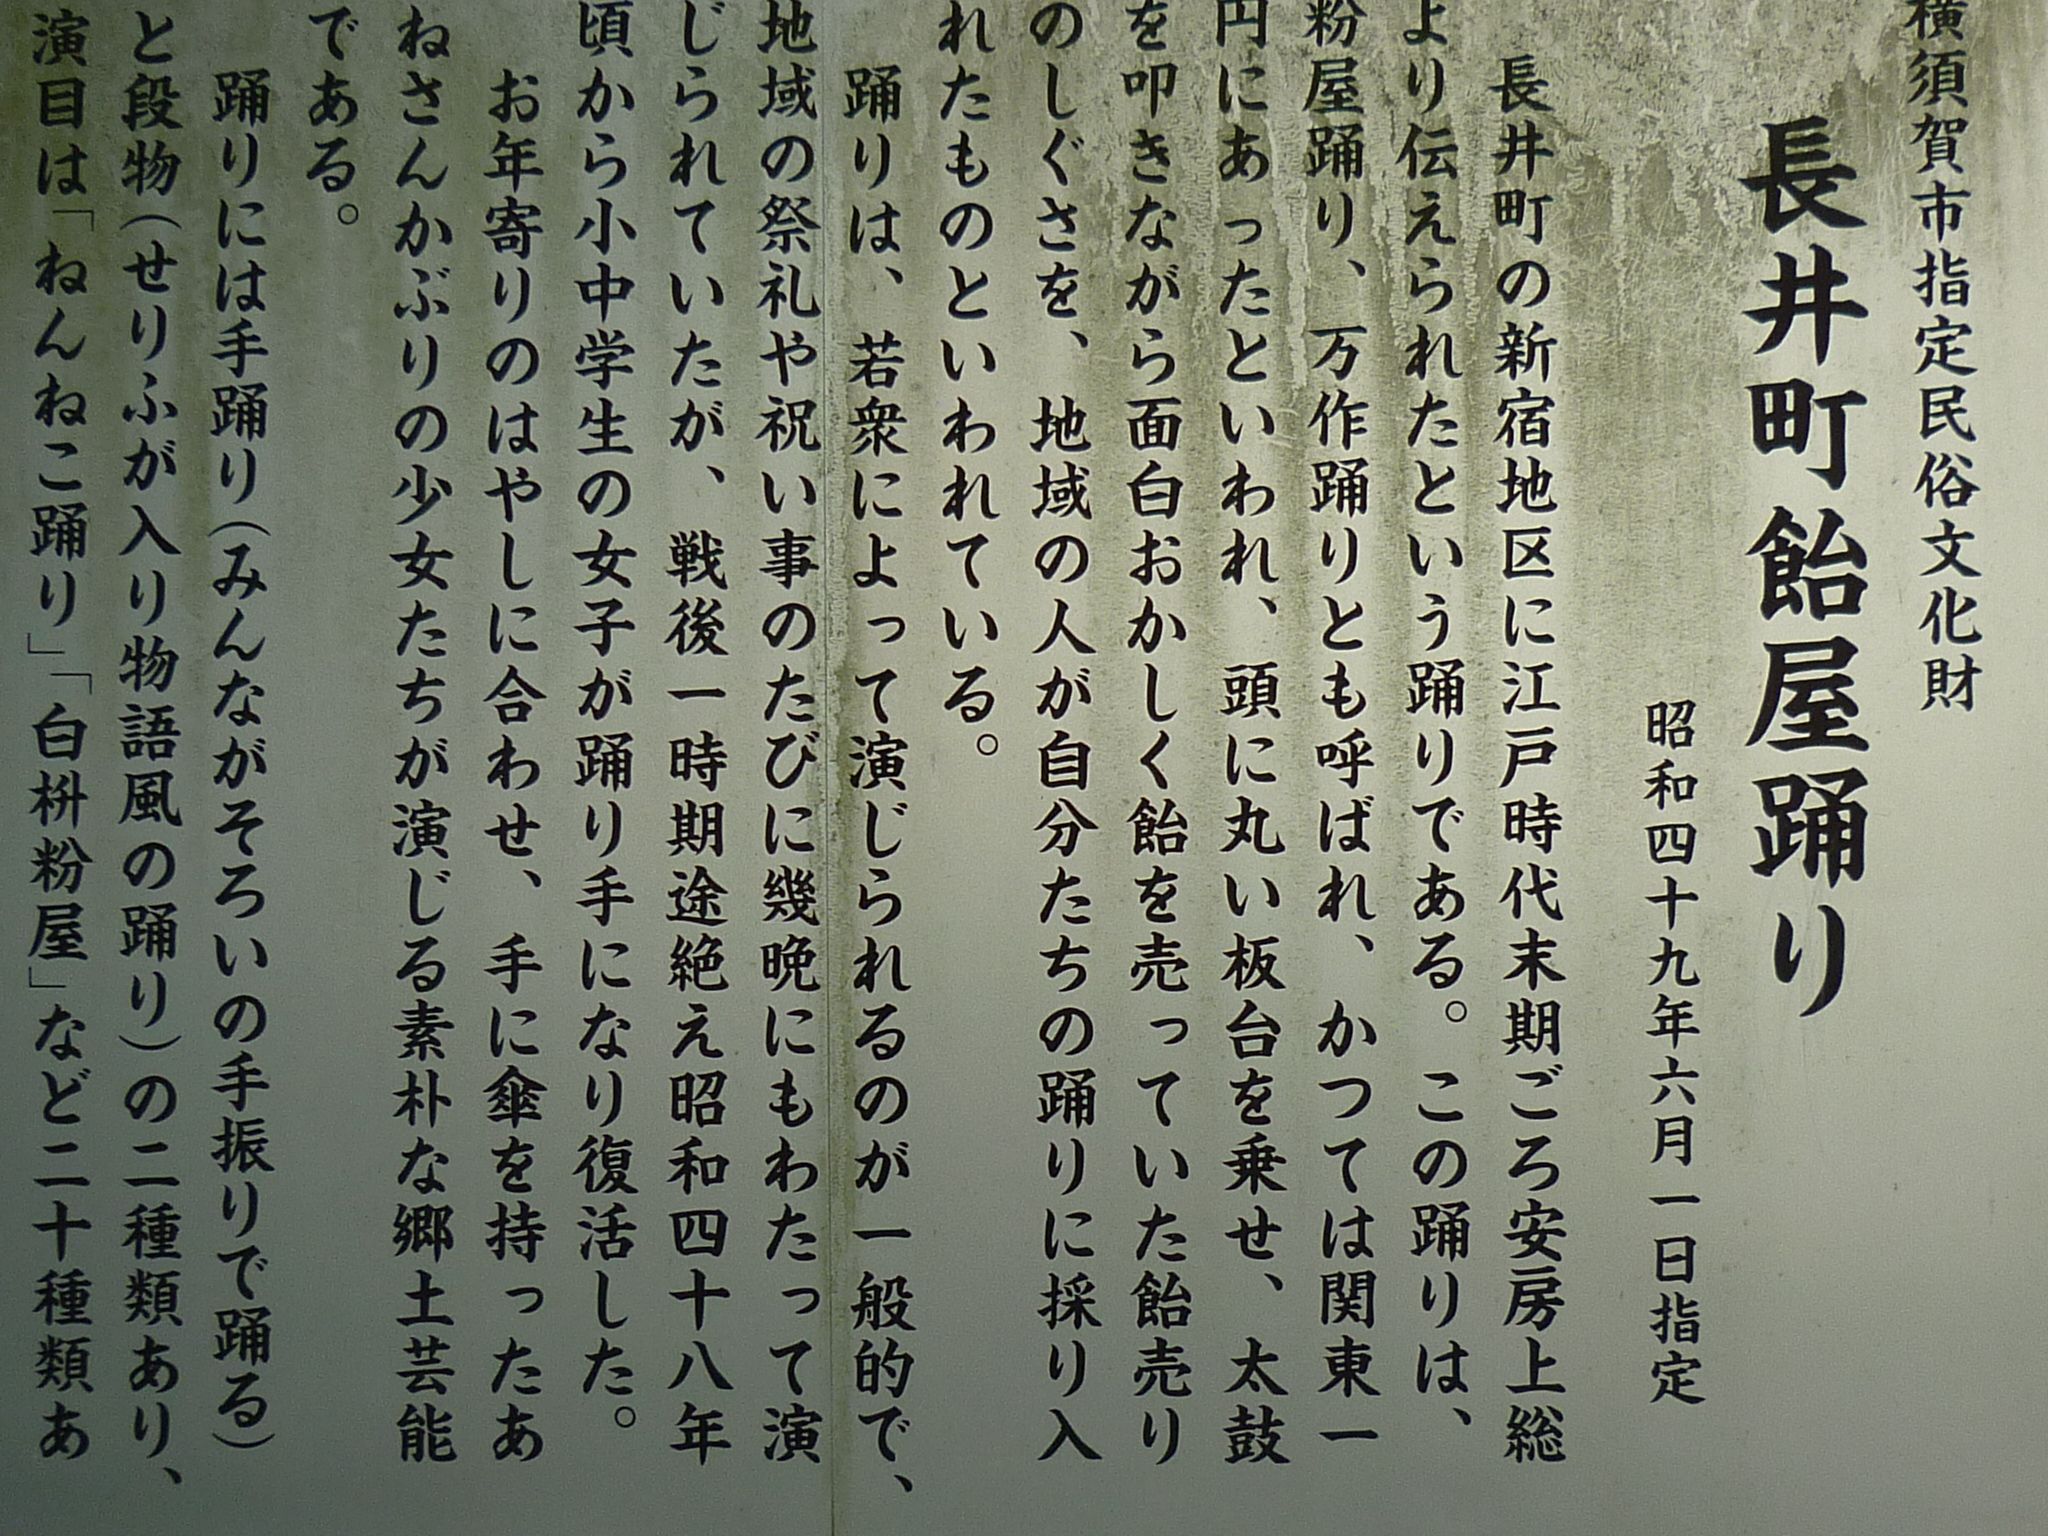 横須賀市指定民俗文化財
長井町飴屋踊り
昭和四十九年六月一日指定
長井町の新宿地区に江戸時代末期ごろ安房上総
より伝えられたという踊りである。この踊りは、
粉屋踊り、万作踊りとも呼ばれ、かつては関東一
円にあったといわれ、頭に丸い板台を乗せ、太鼓
を叩きながら面白おかしく飴を売っていた飴売り
のしぐさを、地域の人が自分たちの踊りに採り入
れたものといわれている。
踊りは、若衆によって演じられるのが一般的で、
地域の祭礼や祝い事のたびに幾晩にもわたって演
じられていたが、戦後一時期途絶え昭和四十八年
頃から小中学生の女子が踊り手になり復活した。
お年寄りのはやしに合わせ、手に傘を持ったあ
ねさんかぶりの少女たちが演じる素朴な郷土芸能
である。
踊りには手踊り(みんながそろいの手振りで踊る)
と段物(せりふが入り物語風の踊り)の二種類あり、
演目は「ねんねこ踊り」「白枡粉屋」など二十種類あ